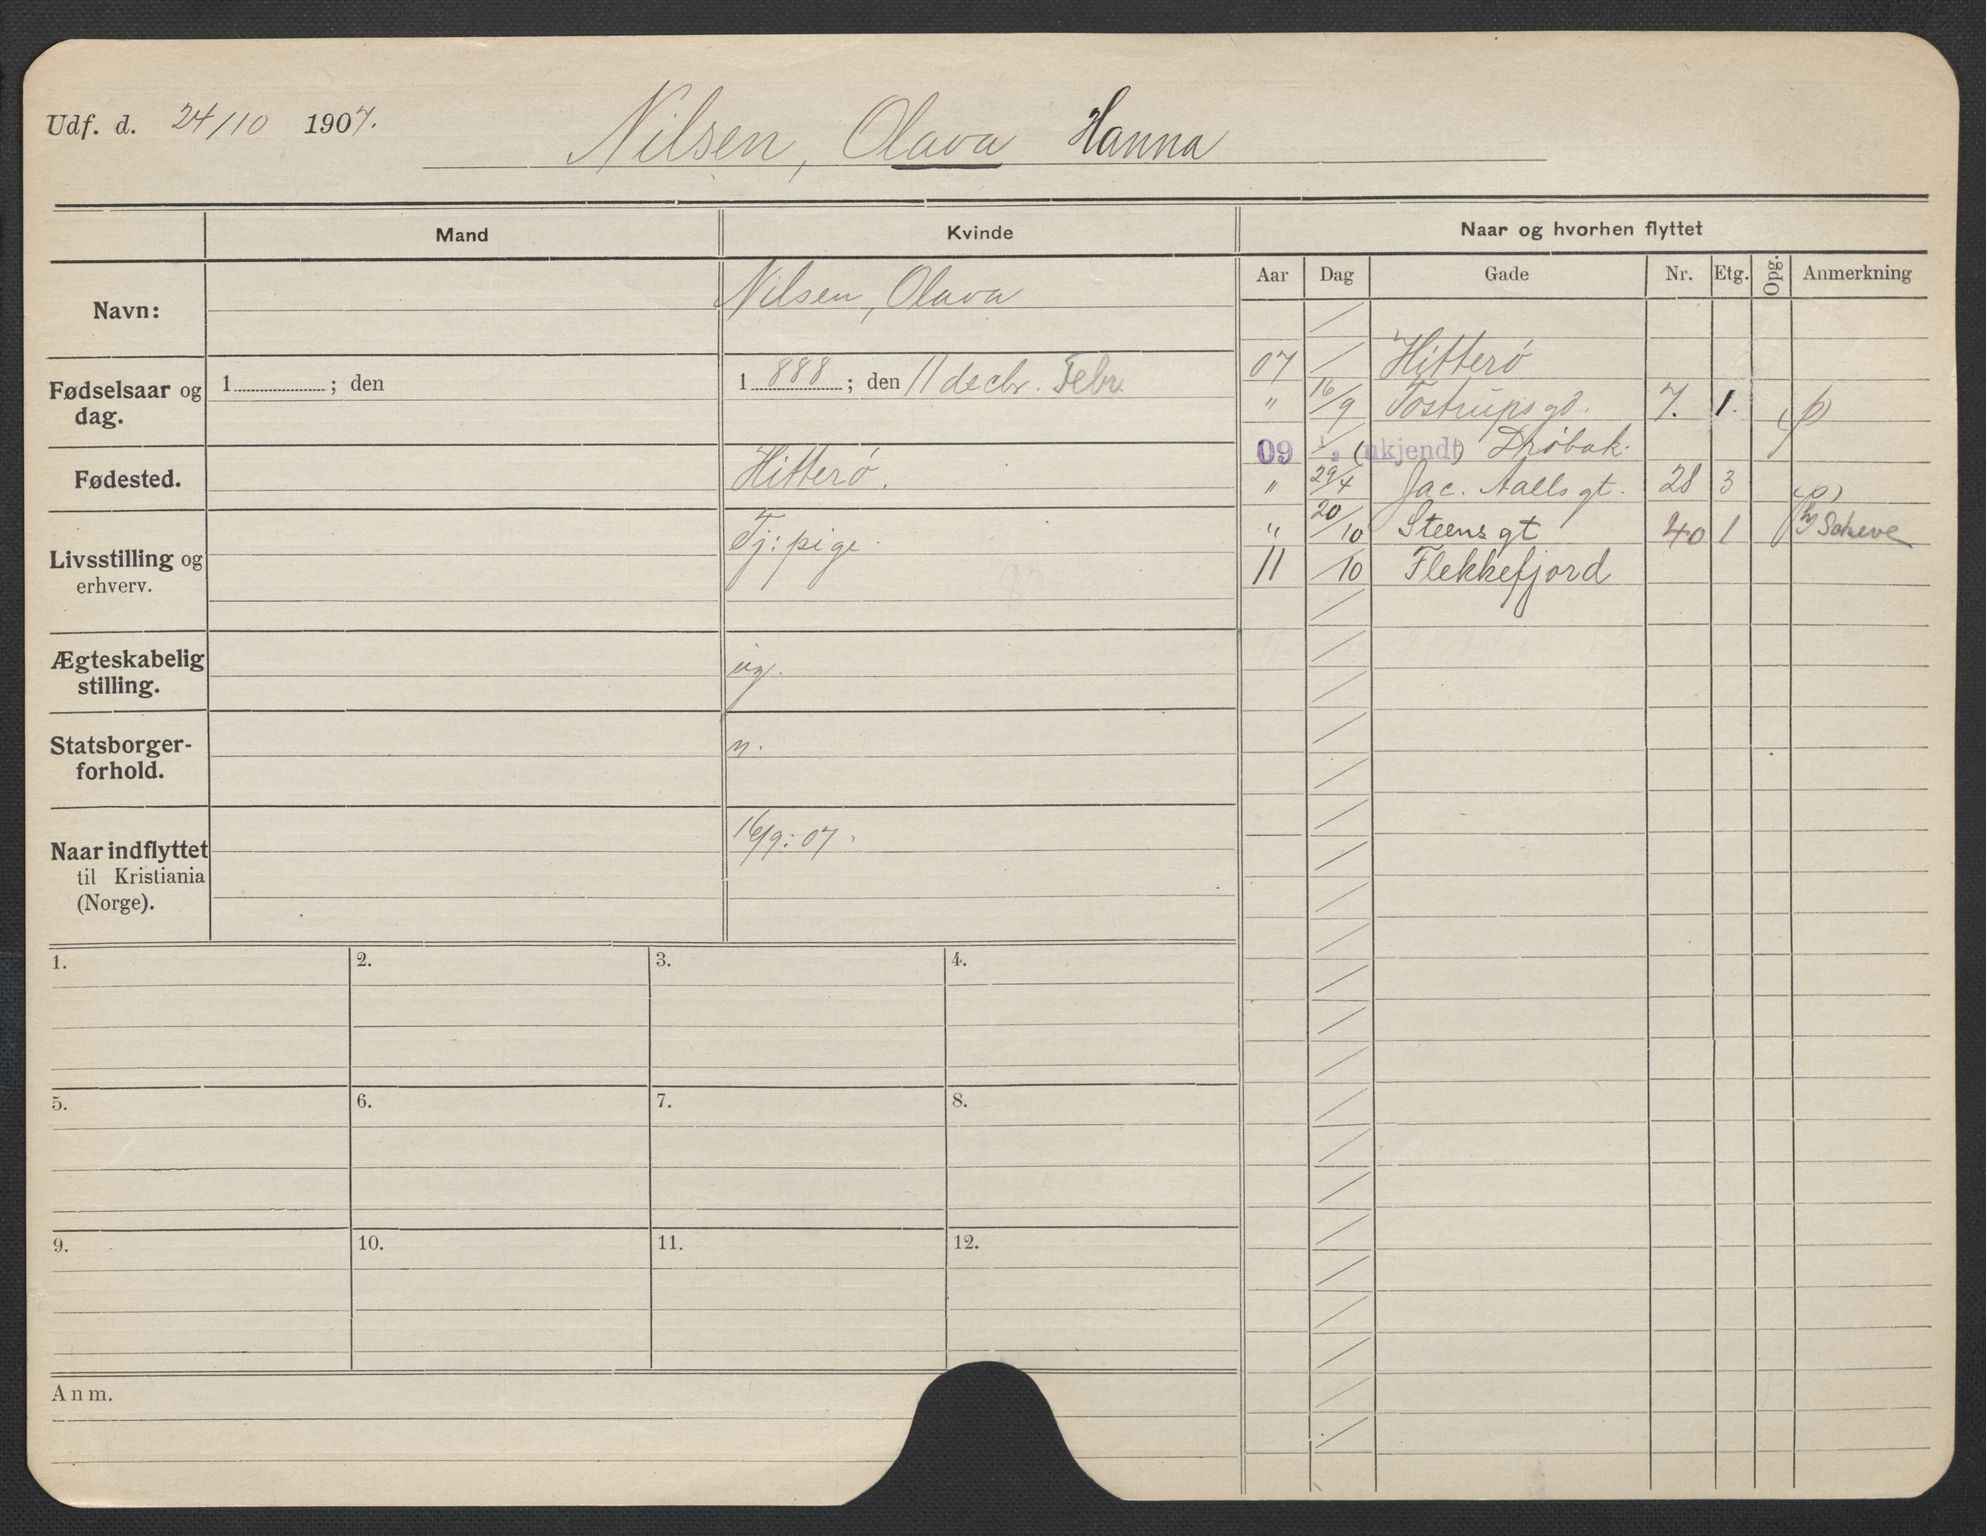 Udf. d. 24/10 1907. Nilsen, Olava Hanna
Mand Kvinde Naar og hvorhen flyttet
Aar Dag Gade Nr. Etg. Opg. Anmerkning
Navn: Nilsen, Olava
Fødselsaar og dag. 1 ; den 1 888 ; den 11 decbr. Febr.
Fødested. Hitterö.
Livsstilling og erhverv. Tj: pige.
Ægteskabelig stilling. ug.
Statsborger-forhold. n.
Naar indflyttet til Kristiania (Norge). 16/9: 07.
07 / Hitterö
" 16/9 Tostrups gd. 7. 1. (p)
09 1/2 (ukjendt) Dröbak.
" 29/4 Jac. Aalls gt. 28 3 (p)
" 20/10 Steens gt 40 1 Scheve
11 /10 Flekkefjord
1. 2. 3. 4.
5. 6. 7. 8.
9. 10. 11. 12.
Anm.